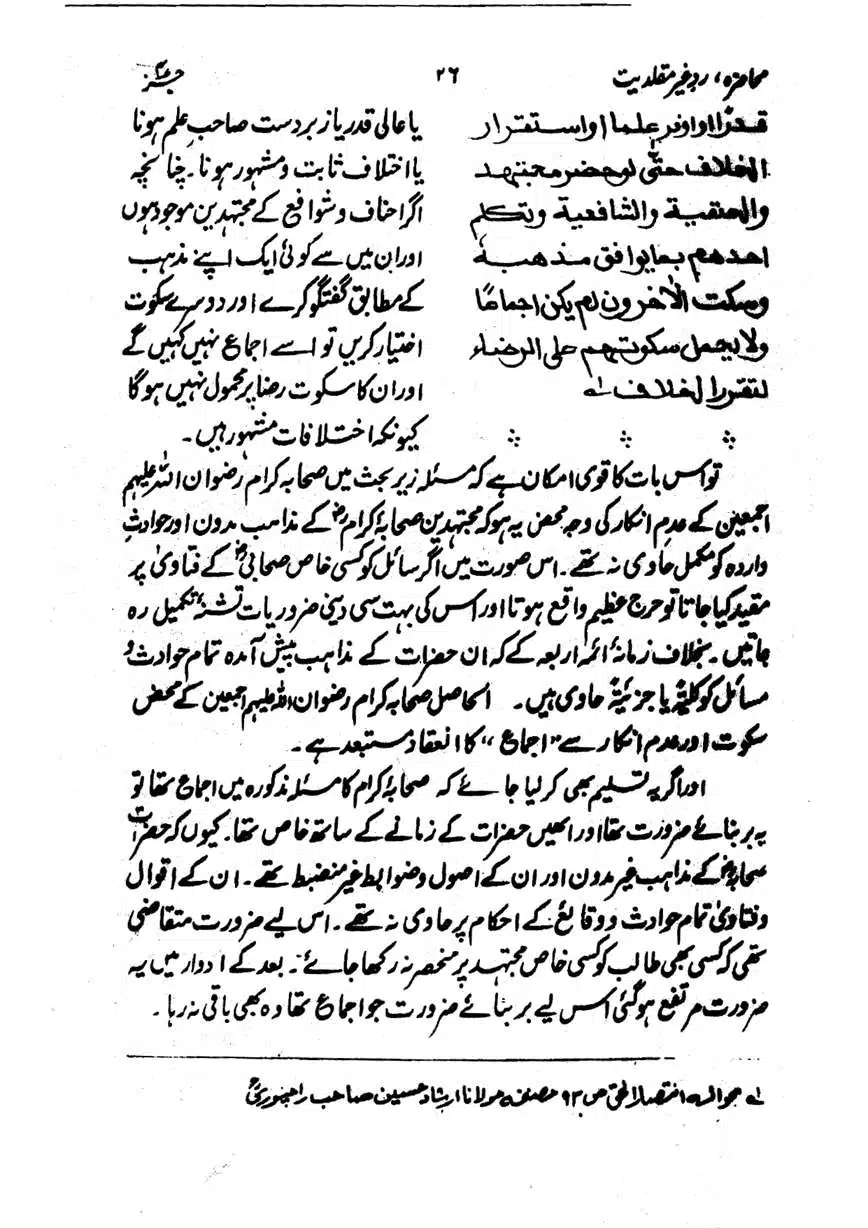 محاضرہ، ردِ غیر مقلدیت
۲۶
جز ۲
قدرًا او اوفر علما او استقرار
الخلاف حتی لو حضر مجتهد
والحنفية والشافعية وتكلم
احدهم بما يوافق مذهبه
وسكت الآخرون لم يكن اجماعًا
ولا يحمل سكوتهم على الرضاء
لتقرر الخلاف لہ
یا عالی قدر یا زبردست صاحبِ علم ہونا
یا اختلاف ثابت و مشہور ہونا۔ چنانچہ
اگر احناف و شوافع کے مجتہدین موجود ہوں
اور ان میں سے کوئی ایک اپنے مذہب
کے مطابق گفتگو کرے اور دوسرے سکوت
اختیار کریں تو اسے اجماع نہیں کہیں گے
اور ان کا سکوت رضا پر محمول نہیں ہوگا
کیونکہ اختلافات مشہور ہیں۔
تو اس بات کا قوی امکان ہے کہ مسئلہ زیر بحث میں صحابہ کرام رضوان اللہ علیہم
اجمعین کے عدمِ انکار کی وجہ محض یہ ہو کہ مجتہدین صحابۂ کرامؓ کے مذاہب مدون اور حوادثِ
واردہ کو مکمل حاوی نہ تھے۔ اس صورت میں اگر سائل کو کسی خاص صحابیؓ کے فتاویٰ پر
مقید کیا جاتا تو حرج عظیم واقع ہوتا اور اس کی بہت سی دینی ضروریات تشنۂ تکمیل رہ
جاتیں۔ بخلاف زمانۂ ائمہ اربعہ کے کہ ان حضرات کے مذاہب پیش آمدہ تمام حوادث و
مسائل کو کلیۃً یا جزئیۃً حاوی ہیں۔ الحاصل صحابہ کرام رضوان اللہ علیہم اجمعین کے محض
سکوت اور عدم انکار سے "اجماع" کا انعقاد مستبعد ہے۔
اور اگر یہ تسلیم بھی کر لیا جائے کہ صحابۂ کرام کا مسئلہ مذکورہ میں اجماع تھا تو
یہ بربنائے ضرورت تھا اور انھیں حضرات کے زمانے کے ساتھ خاص تھا۔ کیوں کہ حضرات
صحابہؓ کے مذاہب غیر مدون اور ان کے اصول و ضوابط غیر منضبط تھے۔ ان کے اقوال
و فتاویٰ تمام حوادث و وقائع کے احکام پر حاوی نہ تھے۔ اس لیے ضرورت متقاضی
تھی کہ کسی بھی طالب کو کسی خاص مجتہد پر منحصر نہ رکھا جائے۔ بعد کے ادوار میں یہ
ضرورت مرتفع ہوگئی اس لیے بربنائے ضرورت جو اجماع تھا وہ بھی باقی نہ رہا۔
لہ بحوالہ انتصار الحق ص ۹۳ مصنفہ مولانا ارشاد حسین صاحب رامپوریؒ